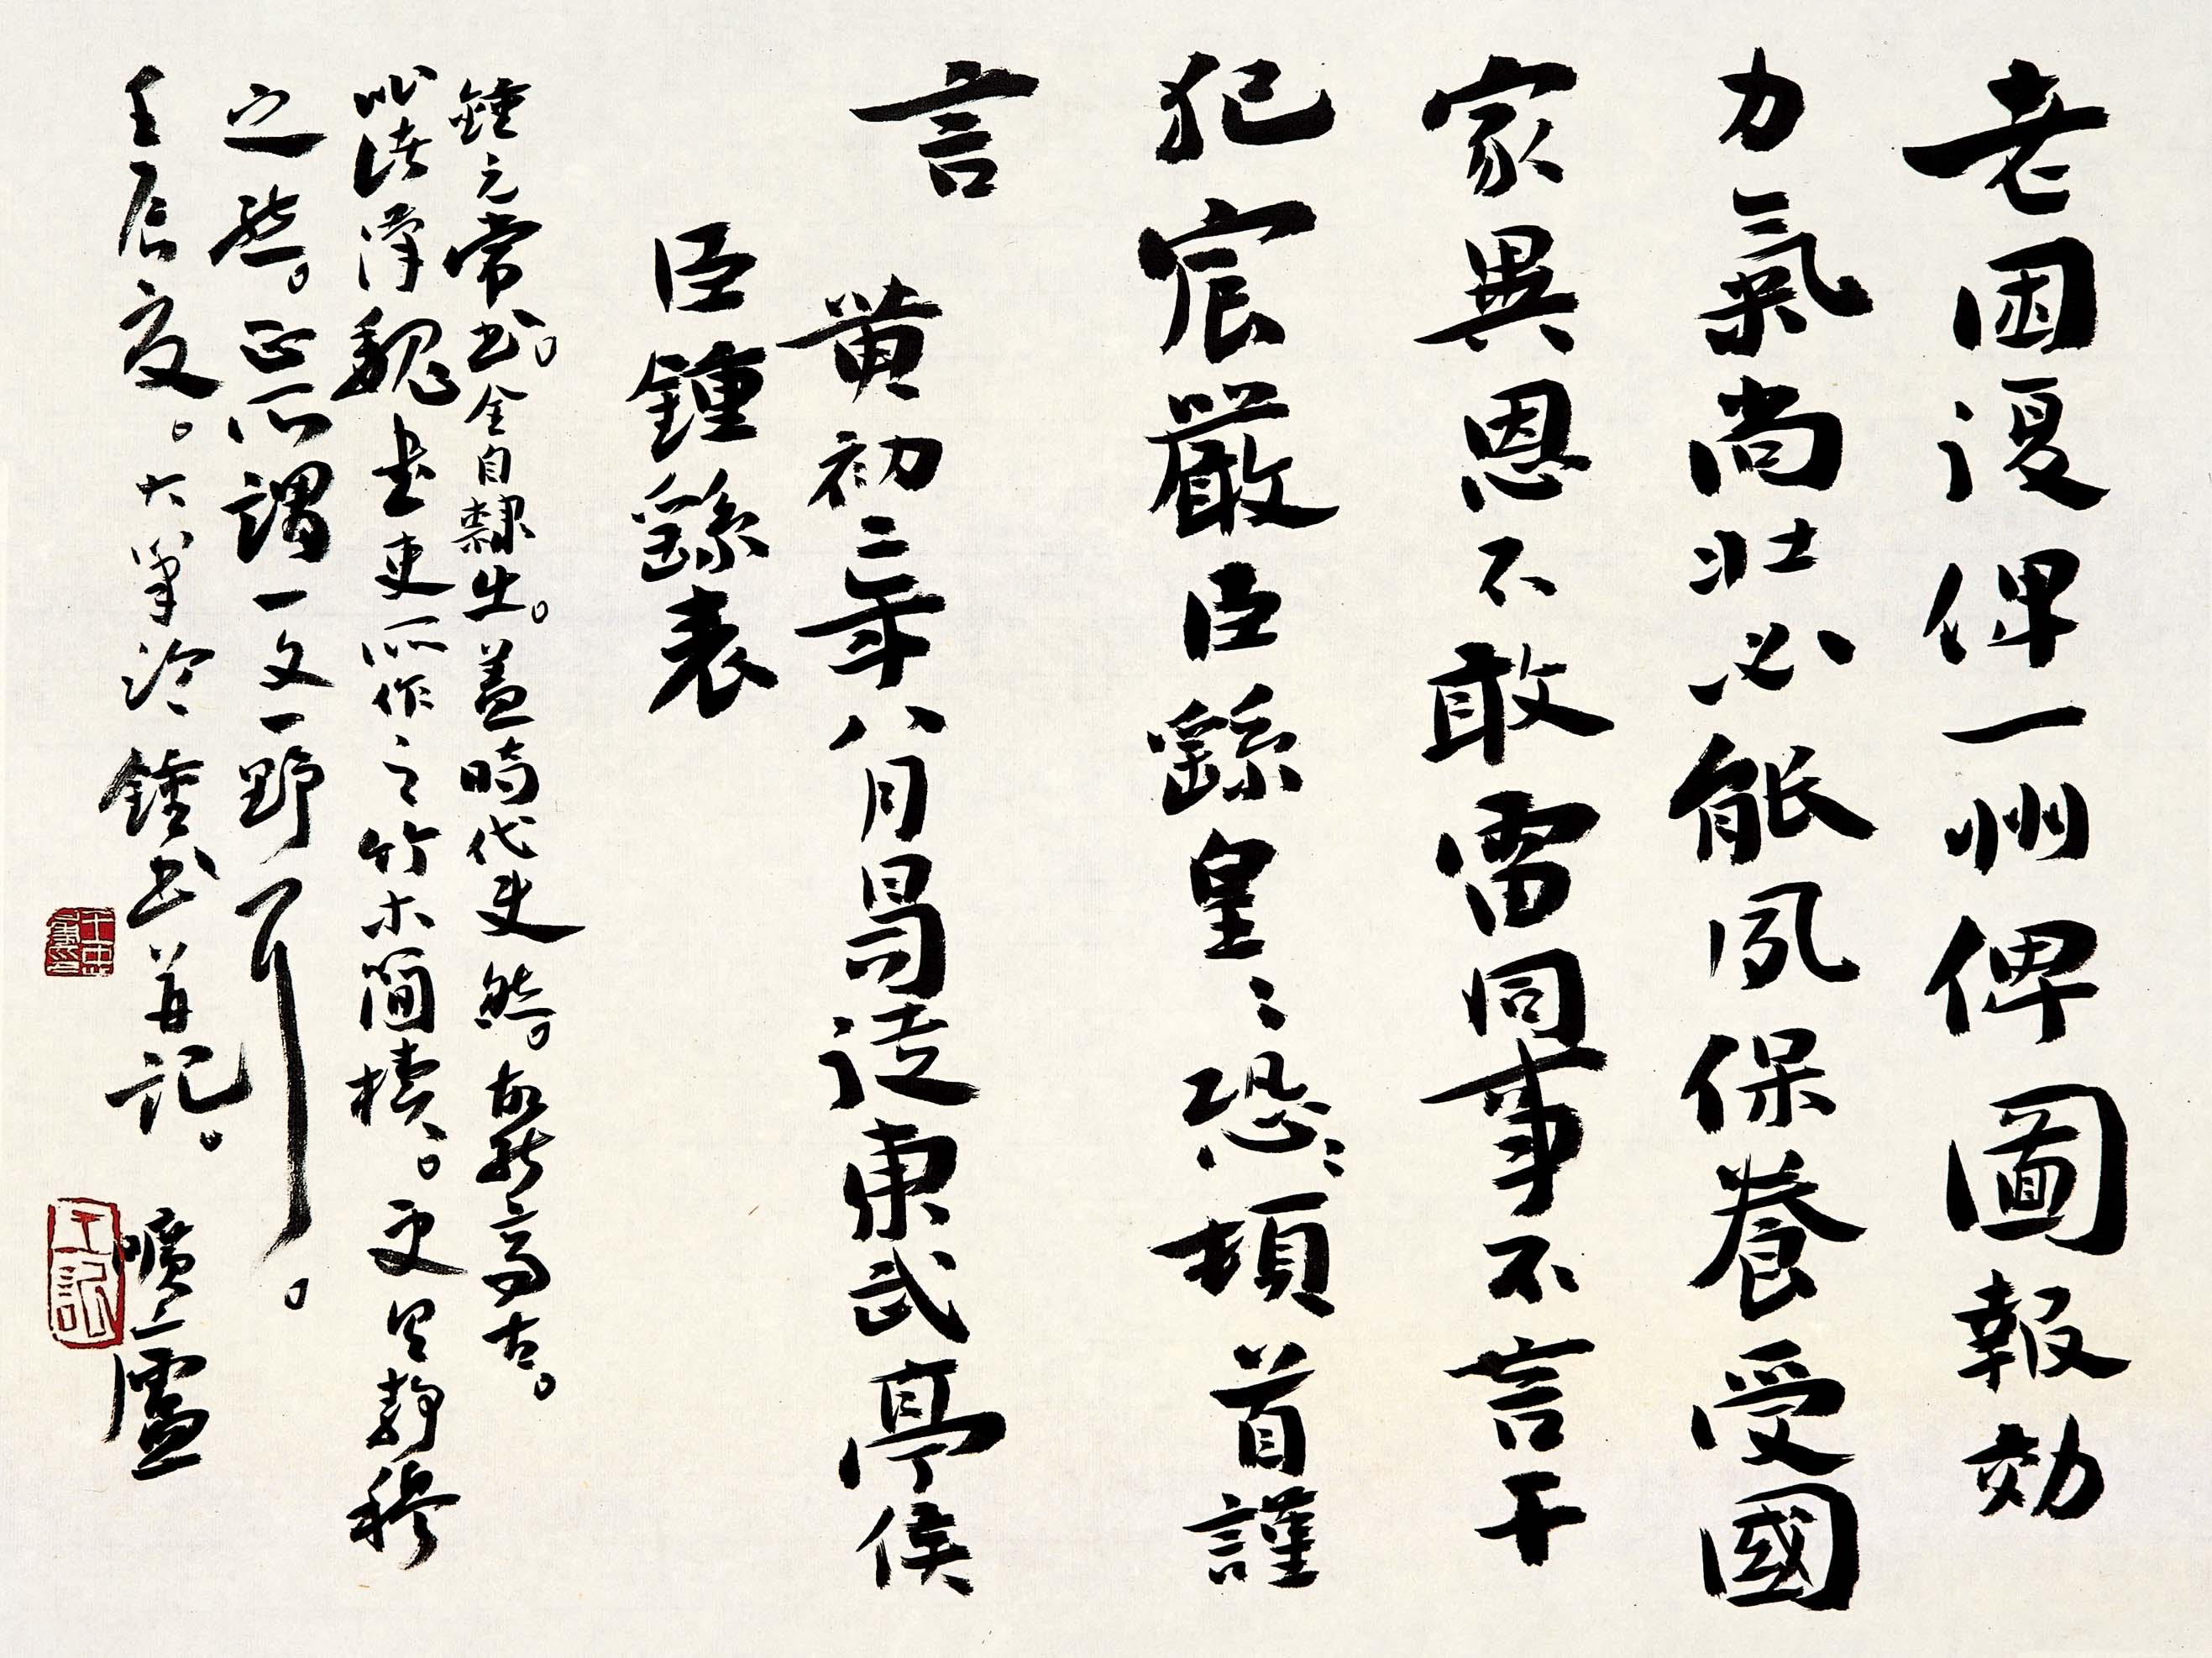 老困復俾一州俾圖報効
力氣尚壯必能夙保養受國
家異恩不敢雷同事不言干
犯宸嚴臣繇皇〻恐〻頓首謹
言
黃初二年八月日司徒東武亭侯
臣鍾繇表
鍾元常書。全自隸出。蓋時代使然。故能高古。
以法漢魏書吏所作之竹木簡牘。更見靜穆
之態。正所謂一文一野耳。
壬辰夏。大筆臨鍾書並記。